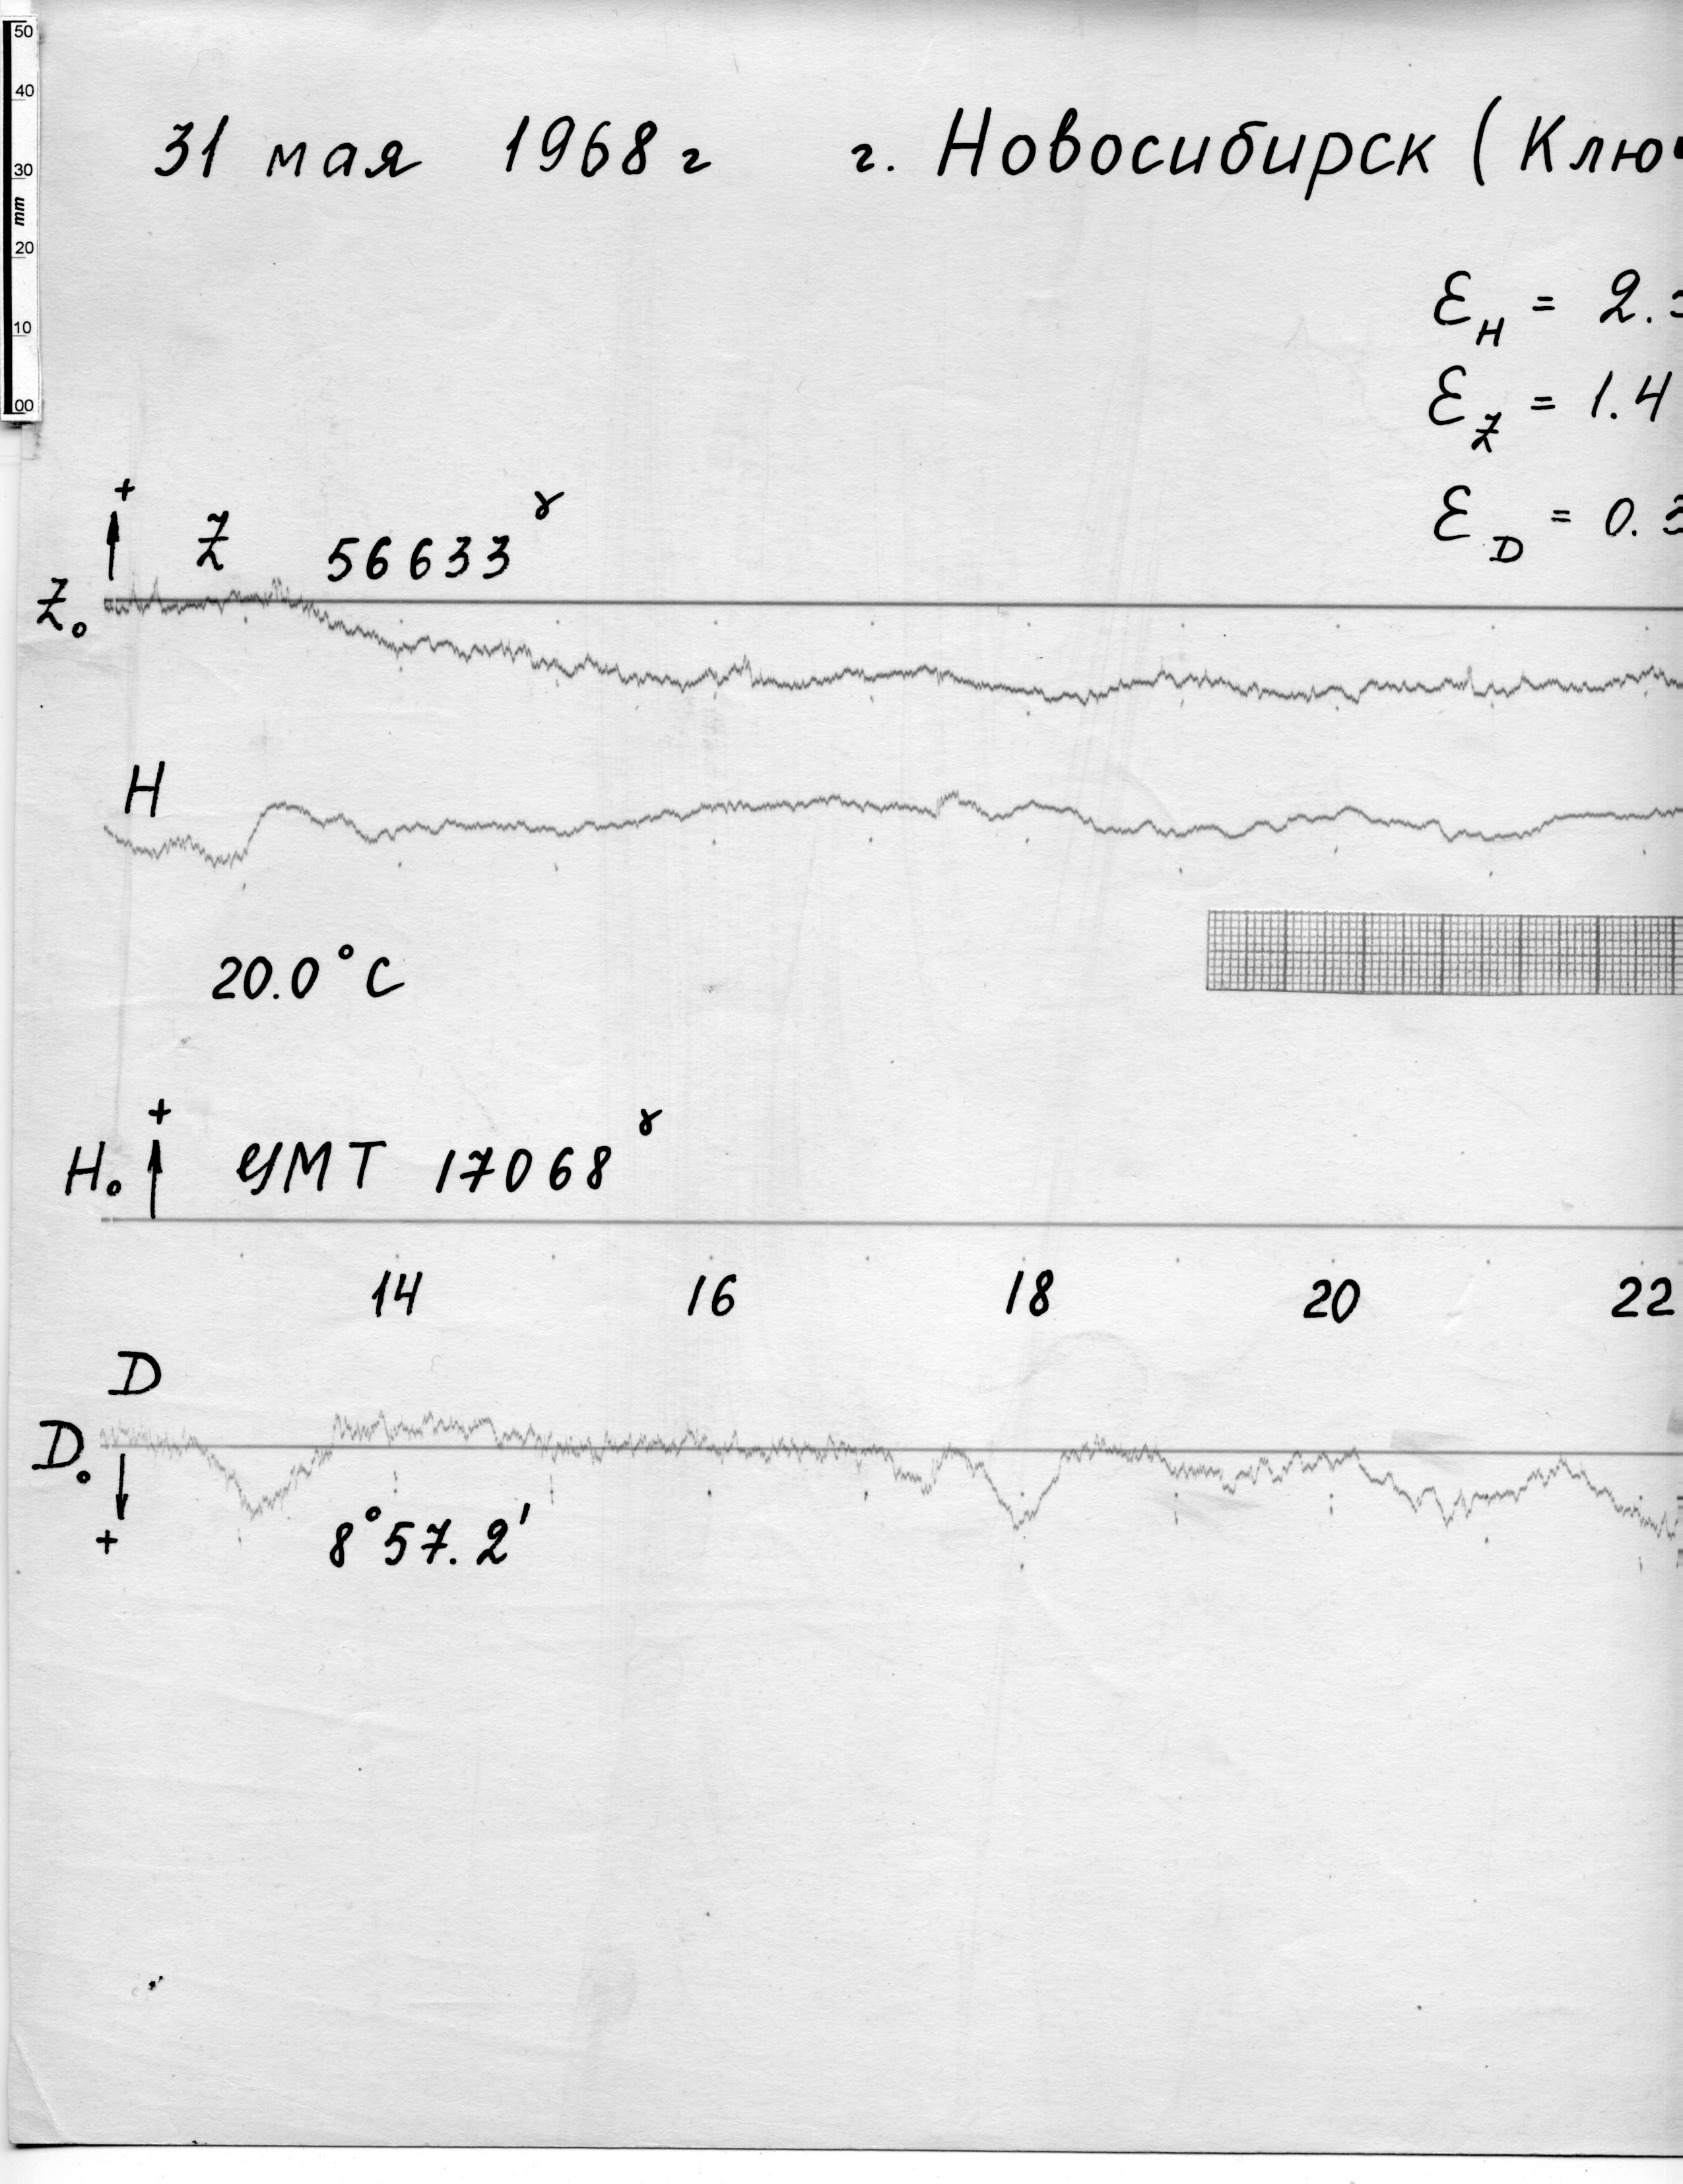 50
40
30
mm
20
10
00
31 мая 1968 г г. Новосибирск (Ключ
ƐH = 2.
ƐZ = 1.4
ƐD = 0.3
+
Z 56633ɣ
Z₀
H
20.0°C
+
H₀ УМТ 17068ɣ
14 16 18 20 22
D
D₀
+
8°57.2'